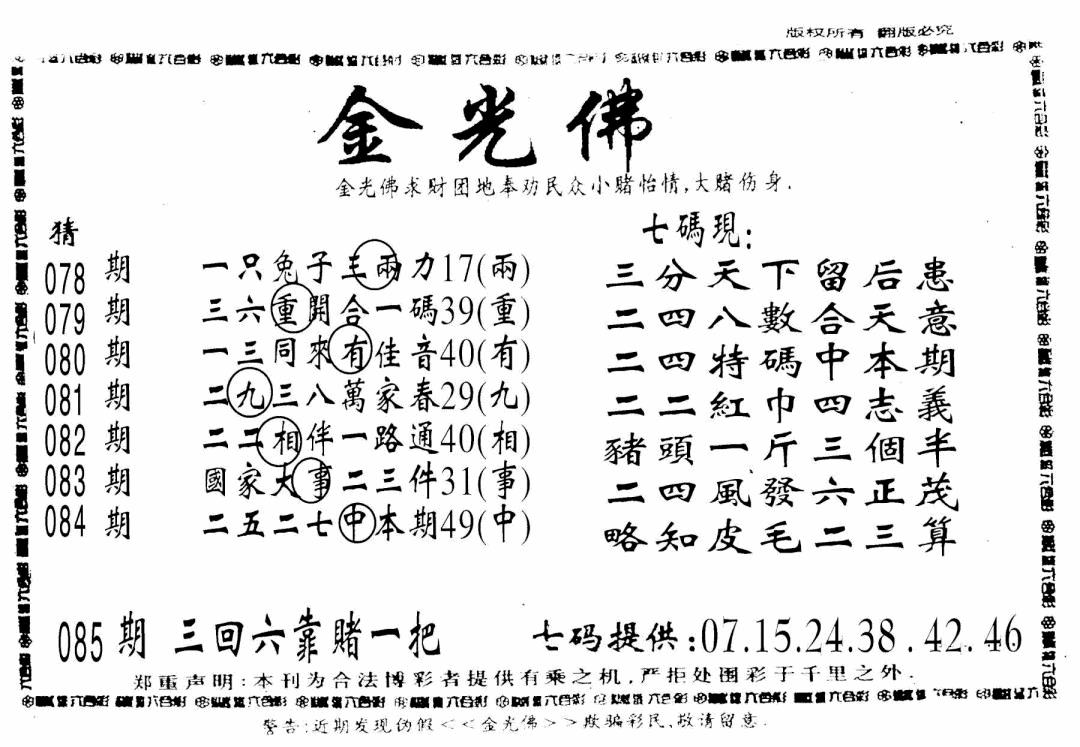 版权所有 翻版必究
金光佛
金光佛求财团地奉劝民众小赌怡情,大赌伤身.
猜
七碼現:
078期 一只兔子主兩力17(兩) 三分天下留后患
079期 三六重開合一碼39(重) 二四八數合天意
080期 一三同來有佳音40(有) 二四特碼中本期
081期 二九三八萬家春29(九) 二二紅巾四志義
082期 二二相伴一路通40(相) 豬頭一斤三個半
083期 國家大事二三件31(事) 二四風發六正茂
084期 二五二七中本期49(中) 略知皮毛二三算
085期 三回六靠賭一把 七码提供:07.15.24.38.42.46
郑重声明:本刊为合法博彩者提供有乘之机,严拒处圈彩于千里之外.
警告:近期发现伪假<<金光佛>>欺骗彩民,敬请留意.